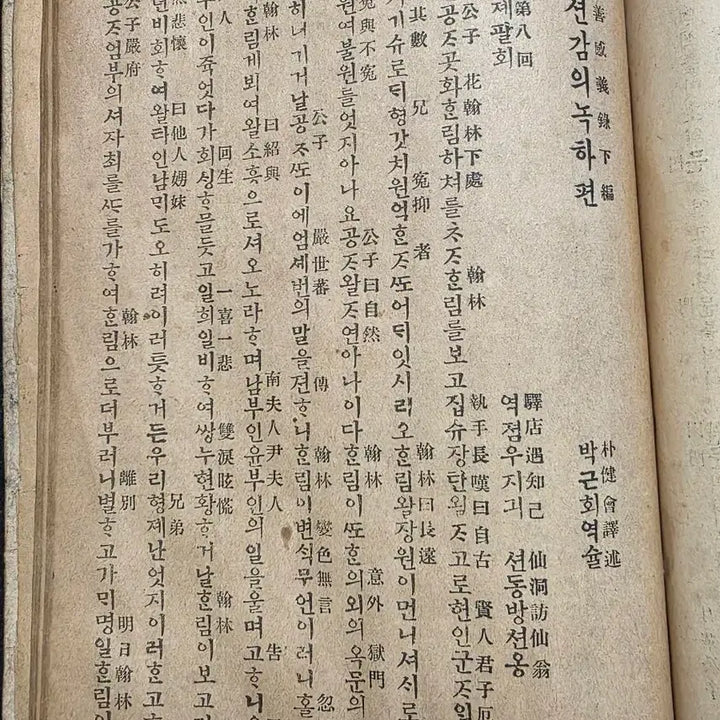 善感義錄下編
션감의녹하편
朴健會譯述
박근회역슐
第八回
뎨팔회
驛店遇知己 仙洞訪仙翁
역졈우지긔 션동방션옹
公子 花翰林下處 翰林 執手長嘆曰自古 賢人君子厄
공ᄌᆞ곳화ᄒᆞᆫ림하쳐를ᄎᆞᄌᆞᄒᆞᆫ림를보고집슈장탄왈ᄌᆞ고로현인군ᄌᆞ일
其數 兄 寃抑 者 翰林曰長遠
기슈로ᄃᆡ형갓치원억ᄒᆞᆫᄌᆞᄯᅩ어ᄃᆡ잇시리오ᄒᆞᆫ림왈장원이먼니셔시로
寃與不寃 公子曰自然 翰林 意外 獄門
원여불원들엇지아나요공ᄌᆞ왈ᄌᆞ연아나이다ᄒᆞᆫ림이ᄯᅩᄒᆞᆫ의외의옥문의
公子 嚴世蕃 傳 翰林 變色無言 忽
히녀기거날공ᄌᆞᄯᅩ이에엄셰번의말을젼ᄒᆞ니ᄒᆞᆫ림이변식무언이러니홀
翰林 曰紹興 南夫人尹夫人 告
ᄒᆞᆫ림게뵈여왈소흥으로셔오노라ᄒᆞ며남부인윤부인의일을울며고ᄒᆞ니
人 回生 一喜一悲 雙淚眩慌 翰林
부인이쥭엇다가회싱ᄒᆞ믈듯고일희일비ᄒᆞ여쌍누현황ᄒᆞ거날ᄒᆞᆫ림이보고
悲懷 曰他人娚妹 兄弟
년비회ᄒᆞ여왈타인남ᄆᆡ도오히려이러틋ᄒᆞ거든우리형졔난엇지이러ᄒᆞᆫ고
公子嚴府 翰林 離別 明日翰林
공ᄌᆞ엄부의셔자최를ᄯᅳ를가ᄒᆞ여ᄒᆞᆫ림으로더부러니별ᄒᆞ고가ᄆᆡ명일ᄒᆞᆫ림이